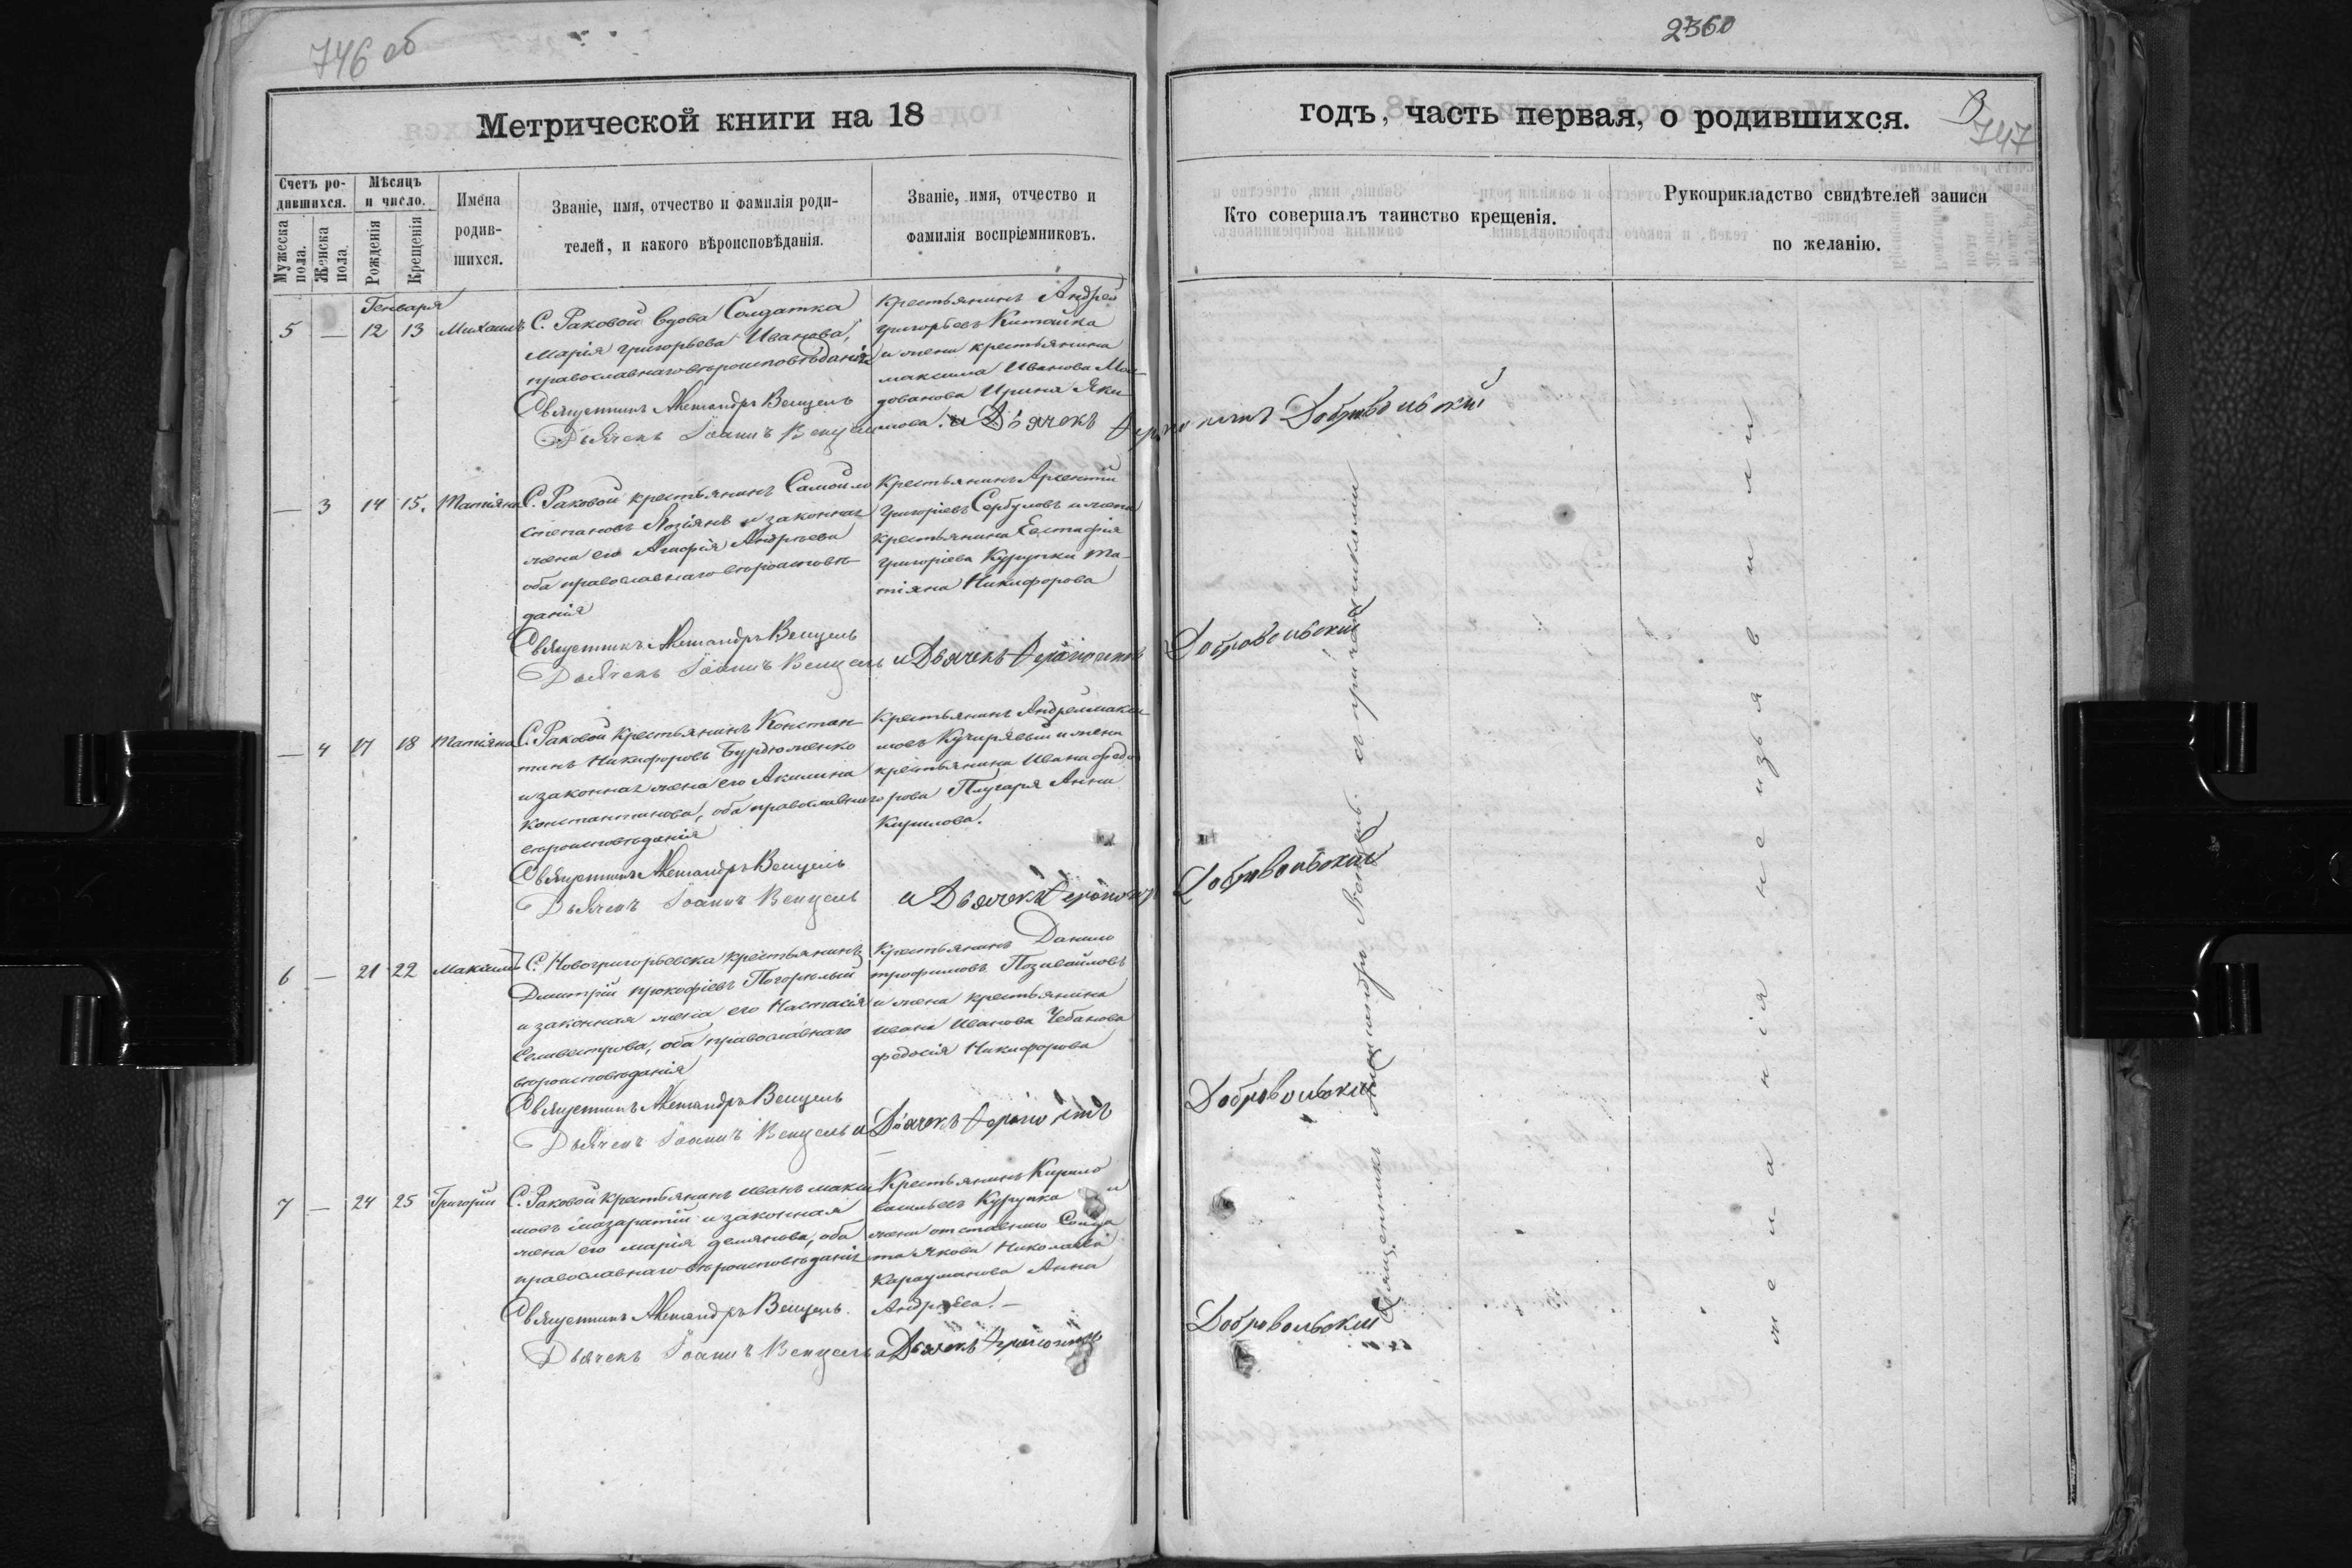 746 об
2360
747
Метрической книги на 18
годъ, часть первая, о родившихся.
Счетъ ро-
дившихся.
Мужеска пола.
Женска пола.
Мѣсяцъ
и число.
Рожденія
Крещенія
Имена
родив-
шихся.
Званіе, имя, отчество и фамилія роди-
телей, и какого вѣроисповѣданія.
Званіе, имя, отчество и
фамилія воспріемниковъ.
Кто совершалъ таинство крещенія.
Рукоприкладство свидѣтелей записи
по желанію.
Генваря
5 — 12 13 Михаилъ
С. Раковой вдова Солдатка
Марія Григорьева Иванова,
православнаго вѣроисповѣданія
Священникъ Александръ Венцель
Дьячекъ Іоаннъ Венцель
Крестьянинъ Андрей
Григорьевъ Китайка
и жена крестьянина
Максима Иванова
Ирина
и Дьячекъ Добровольскій
— 3 14 15. Татіяна
С. Раковой крестьянинъ Самойло
Степановъ Лозіянъ и законная
жена его Агафія Андреева
оба православнаго вѣроисповѣ-
данія
Священникъ Александръ Венцель
Дьячекъ Іоаннъ Венцель
Крестьянинъ Арсентій
Григоріевъ Сербуловъ и жена
крестьянина Евстафія
Григоріева Курупки Та-
тіяна Никифорова
и Дьячекъ Добровольскій
— 4 17 18 Татіяна
С. Раковой крестьянинъ Констан-
тинъ Никифоровъ Бурдюженко
и законная жена его Акилина
Константинова, оба православнаго
вѣроисповѣданія
Священникъ Александръ Венцель
Дьячекъ Іоаннъ Венцель
Крестьянинъ Андрей Макси-
мовъ Кучирявый и жена
крестьянина Ивана Федо
рова Плугаря Анна
Кирилова.
и Дьячекъ Добровольскій
6 — 21 22 Максимъ
С. Новогригорьевска крестьянинъ
Димитрій Прокофіевъ Погорелый
и законная жена его Настасія
Селивестрова, оба православнаго
вѣроисповѣданія
Священникъ Александръ Венцель
Дьячекъ Іоаннъ Венцель и
Крестьянинъ Данило
Трофимовъ Позивайловъ
и жена крестьянина
Ивана Иванова Чебанова
Федосія Никифорова
Дьячекъ Добровольскій
7 — 24 25 Григорій
С. Раковой крестьянинъ Иванъ Макси
мовъ и законная
жена его Марія Демянова, оба
православнаго вѣроисповѣданія
Священникъ Александръ Венцель.
Дьячекъ Іоаннъ Венцель
Крестьянинъ Кирило
Васильевъ Курупка и
жена отставнаго Солда
та Якова Николаева
Карауманова Анна
Андреева. —
и Дьячекъ Добровольскій
Священникъ Александръ Венцель съ причетниками
желанія не изъявили